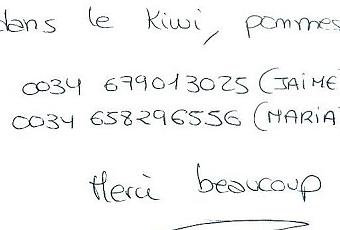 dans le Kiwi, pommes
0034 679013025 (JAIME
0034 658296556 (MARIA
Merci beaucoup